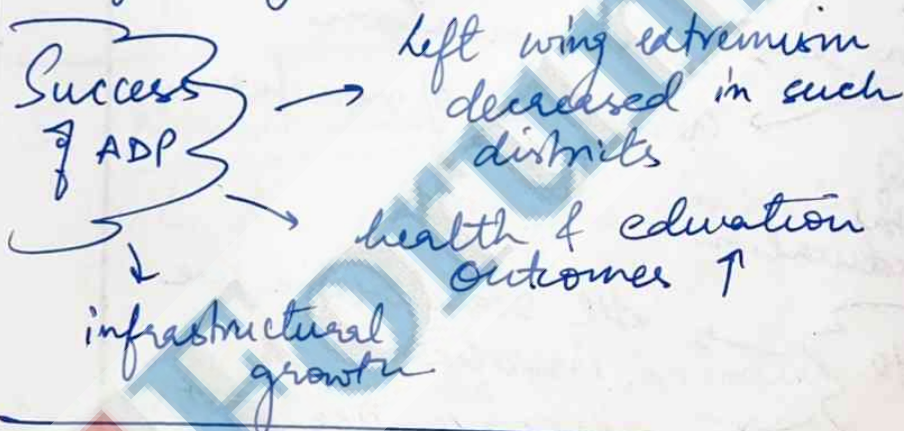 Success
of ADP
→ Left wing extremism
decreased in such
districts
→ health & eduvation
outcomes ↑
↓
infrastructural
growth
Forum